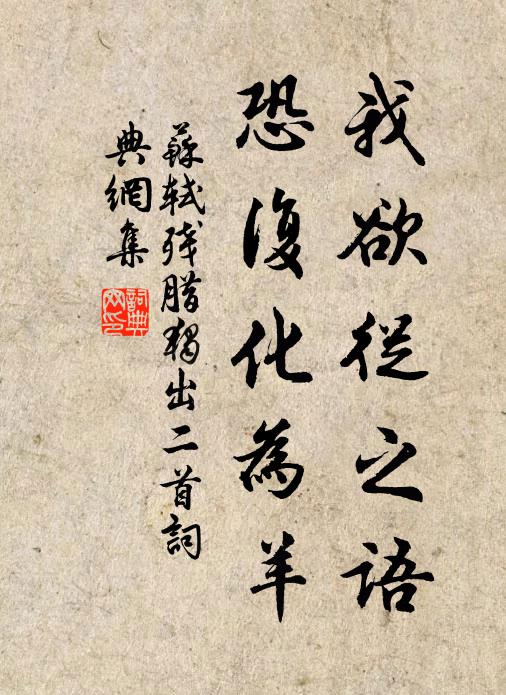 我欲從之語
恐復化為羊
蘇軾残腊獨出二首詞
典網集
詞典網印